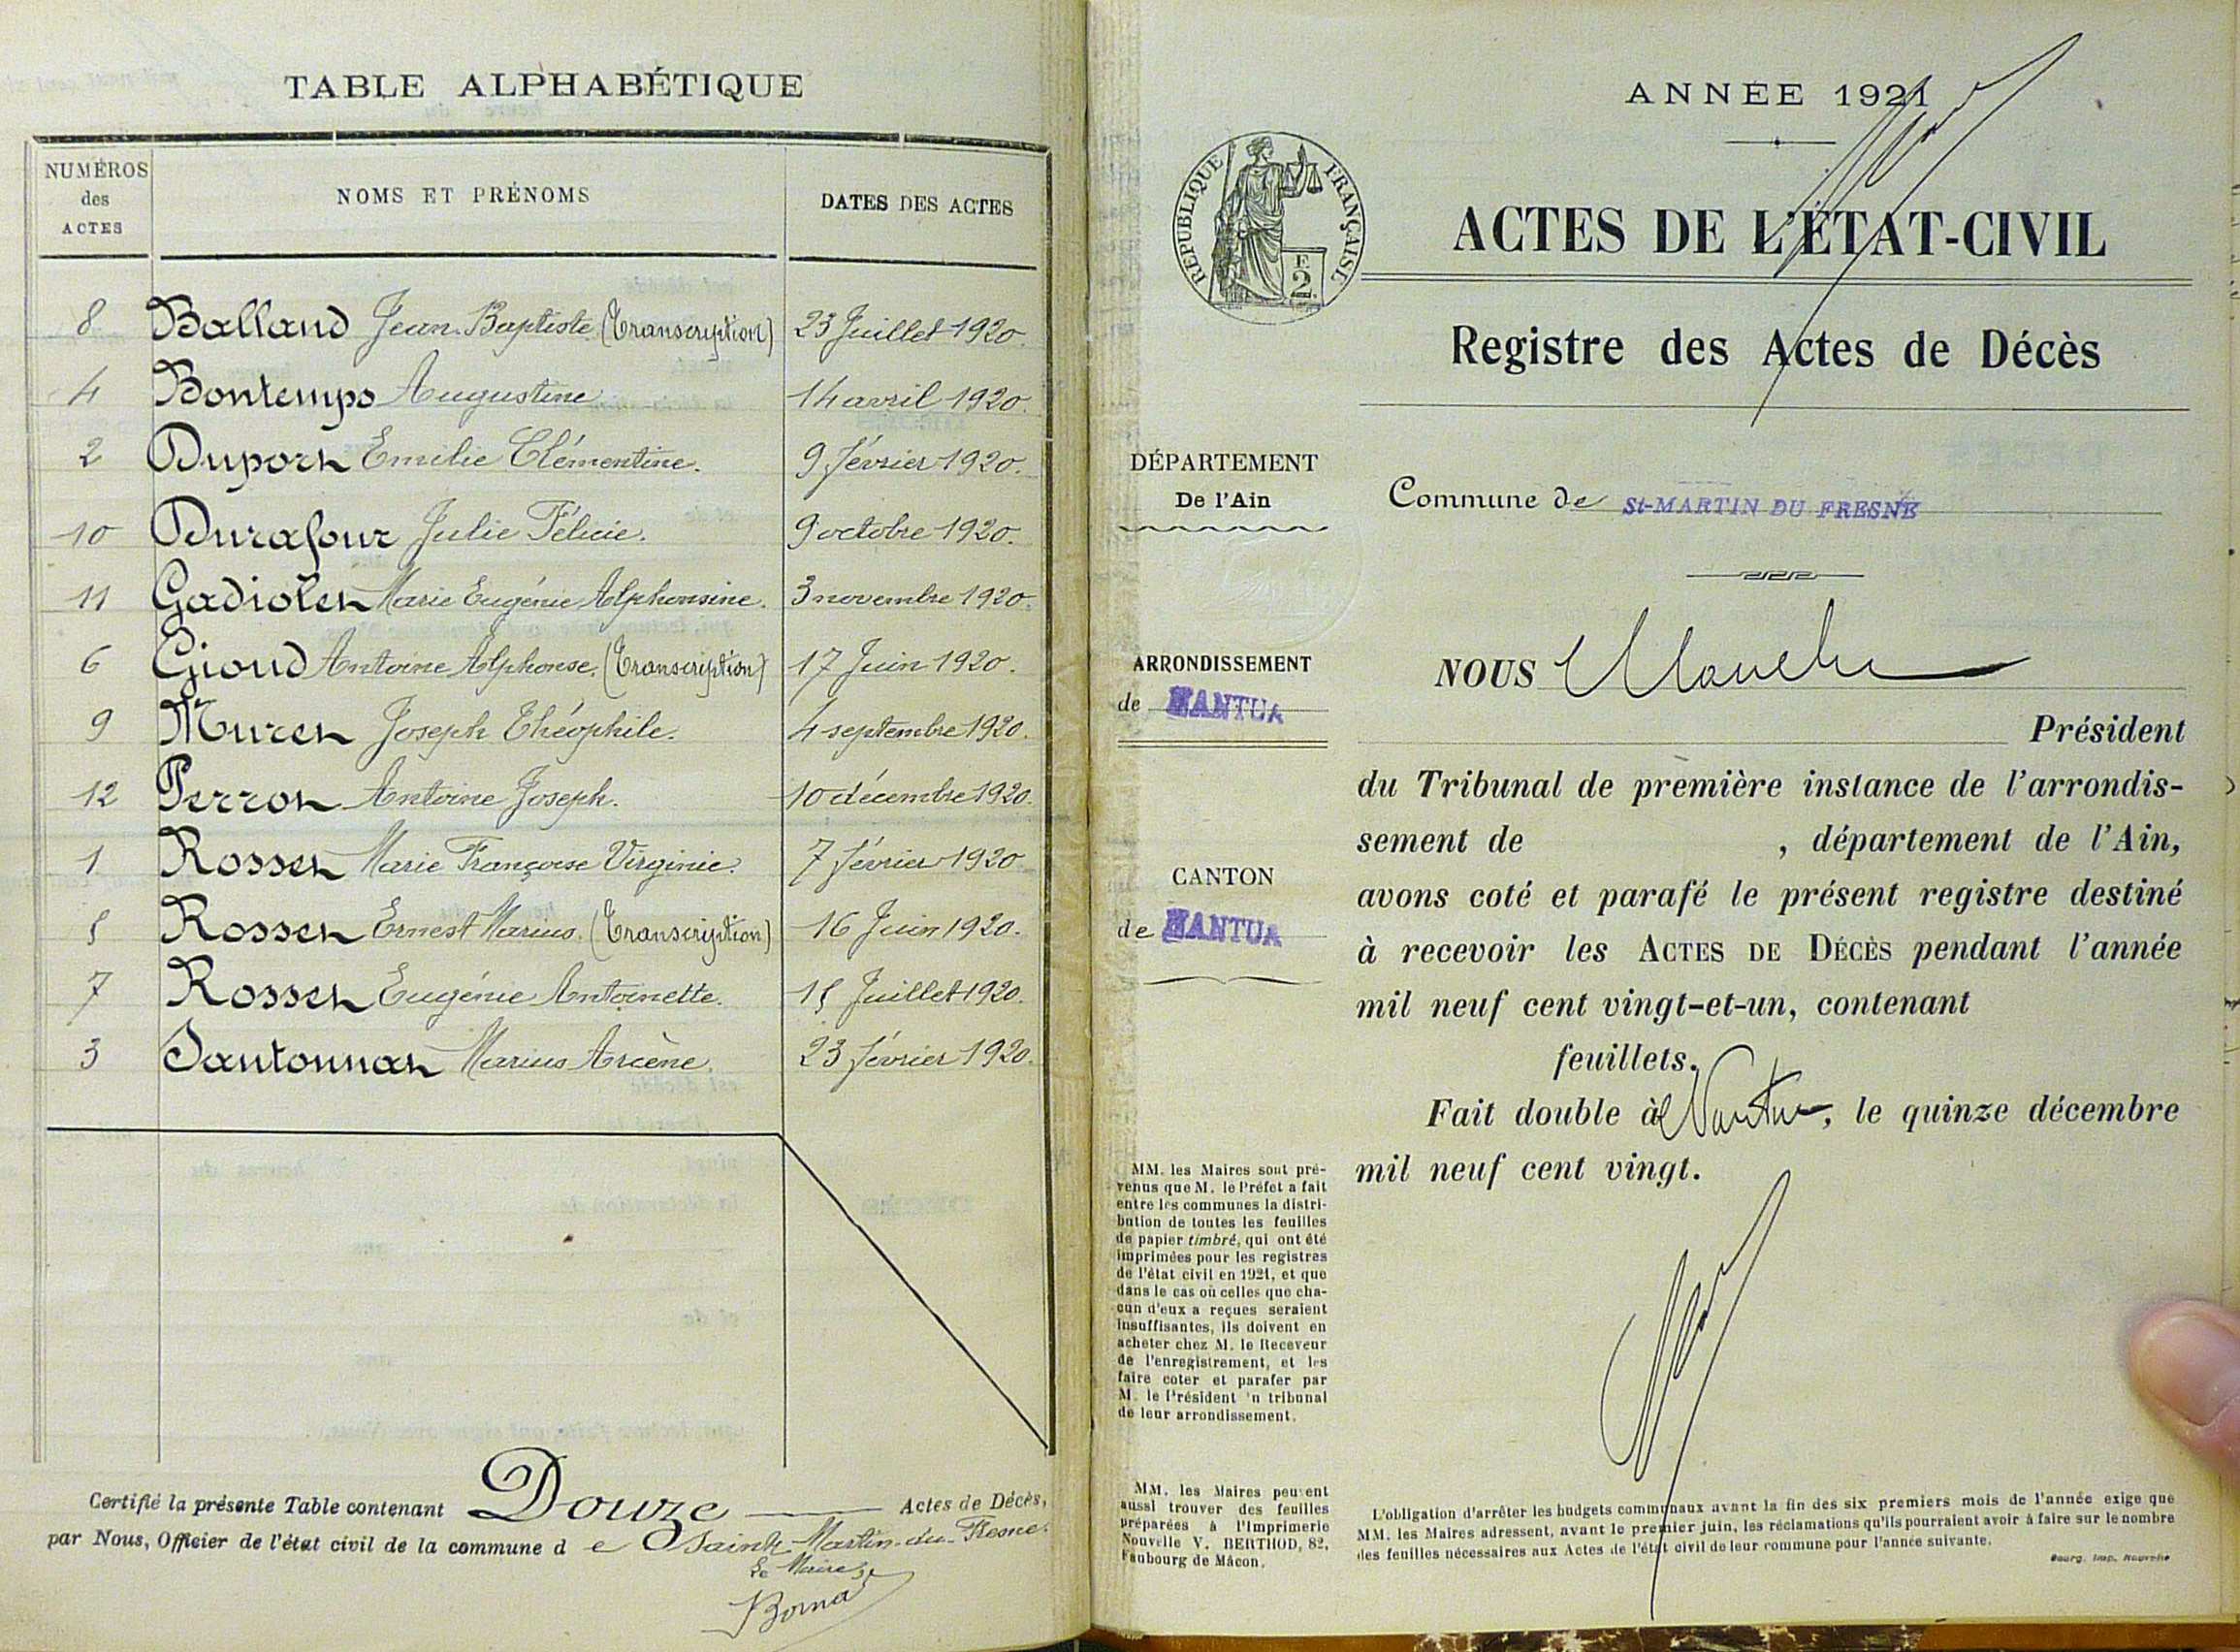 TABLE ALPHABÉTIQUE
NUMÉROS des ACTES
NOMS ET PRÉNOMS
DATES DES ACTES
8 Balland Jean-Baptiste (Transcription) 23 Juillet 1920.
4 Bontemps Augustine 14 avril 1920.
2 Duport Emilie Clémentine. 9 février 1920.
10 Durafour Julie Félicie. 9 octobre 1920.
11 Gadiolet Marie Eugénie Alphonsine. 3 novembre 1920.
6 Gioud Antoine Alphonse. (Transcription) 17 Juin 1920.
9 Muret Joseph Théophile. 4 septembre 1920.
12 Perrot Antoine Joseph. 10 décembre 1920.
1 Rosset Marie Françoise Virginie. 7 février 1920
5 Rosset Ernest Marius. (Transcription) 16 Juin 1920.
7 Rosset Eugénie Antoinette. 15 Juillet 1920.
3 Santonnat Marius Arcène. 23 février 1920.
Certifié la présente Table contenant Douze Actes de Décès,
par Nous, Officier de l'état civil de la commune d e Saint-Martin-du-Fresne.
Le Maire
ANNÉE 1921
RÉPUBLIQUE FRANÇAISE
E
2
ACTES DE L'ÉTAT-CIVIL
Registre des Actes de Décès
DÉPARTEMENT
De l'Ain
Commune de St-MARTIN DU FRESNE
ARRONDISSEMENT
de NANTUA
CANTON
de NANTUA
NOUS
Président
du Tribunal de première instance de l'arrondis-
sement de , département de l'Ain,
avons coté et parafé le présent registre destiné
à recevoir les ACTES DE DÉCÈS pendant l'année
mil neuf cent vingt-et-un, contenant
feuillets.
Fait double à Nantua, le quinze décembre
mil neuf cent vingt.
MM. les Maires sont pré-
venus que M. le Préfet a fait
entre les communes la distri-
bution de toutes les feuilles
de papier timbré, qui ont été
imprimées pour les registres
de l'état civil en 1921, et que
dans le cas où celles que cha-
cun d'eux a reçues seraient
insuffisantes, ils doivent en
acheter chez M. le Receveur
de l'enregistrement, et les
faire coter et parafer par
M. le Président 'n tribunal
de leur arrondissement.
MM. les Maires peuvent
aussi trouver des feuilles
préparées à l'Imprimerie
Nouvelle V. BERTHOD, 82,
Faubourg de Mâcon.
L'obligation d'arrêter les budgets communaux avant la fin des six premiers mois de l'année exige que
MM. les Maires adressent, avant le premier juin, les réclamations qu'ils pourraient avoir à faire sur le nombre
des feuilles nécessaires aux Actes de l'état civil de leur commune pour l'année suivante.
Bourg, Imp. Nouvelle